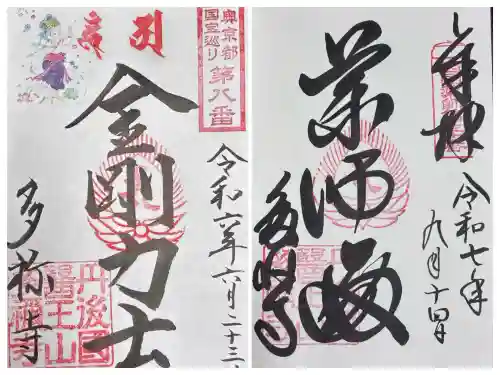 奥京都
国宝巡り
第八番
特別
金剛力士
令和六年六月二十三
多祢寺
丹後國
醫王山
多禰寺
奉拝
薬師瑠
令和七年
九月十四日
多祢寺